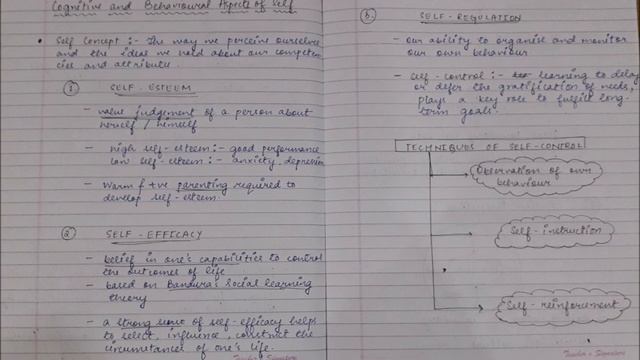 Cognitive and Behavioural Aspects of Self
• Self Concept :- The way we perceive ourselves
and the ideas we hold about our competen
cies and attributes.
① SELF - ESTEEM
- value judgement of a person about
herself / himself
- high self-esteem :- good performance
low self-esteem :- anxiety, depression
- Warm & +ve parenting required to
develop self-esteem.
② SELF - EFFICACY
- belief in one's capabilities to control
the outcomes of life
- based on Bandura's Social learning
theory
- a strong sense of self-efficacy helps
to select, influence, construct the
circumstances of one's life.
Teacher's Signature
SELF - REGULATION
- our ability to organise and monitor
our own behaviour
- Self-control :- learning to delay
or defer the gratification of needs,
plays a key role to fulfill long-
term goals.
TECHNIQUES OF SELF-CONTROL
Observation of own
behaviour
Self - instruction
Self - reinforcement
Teacher's Signature